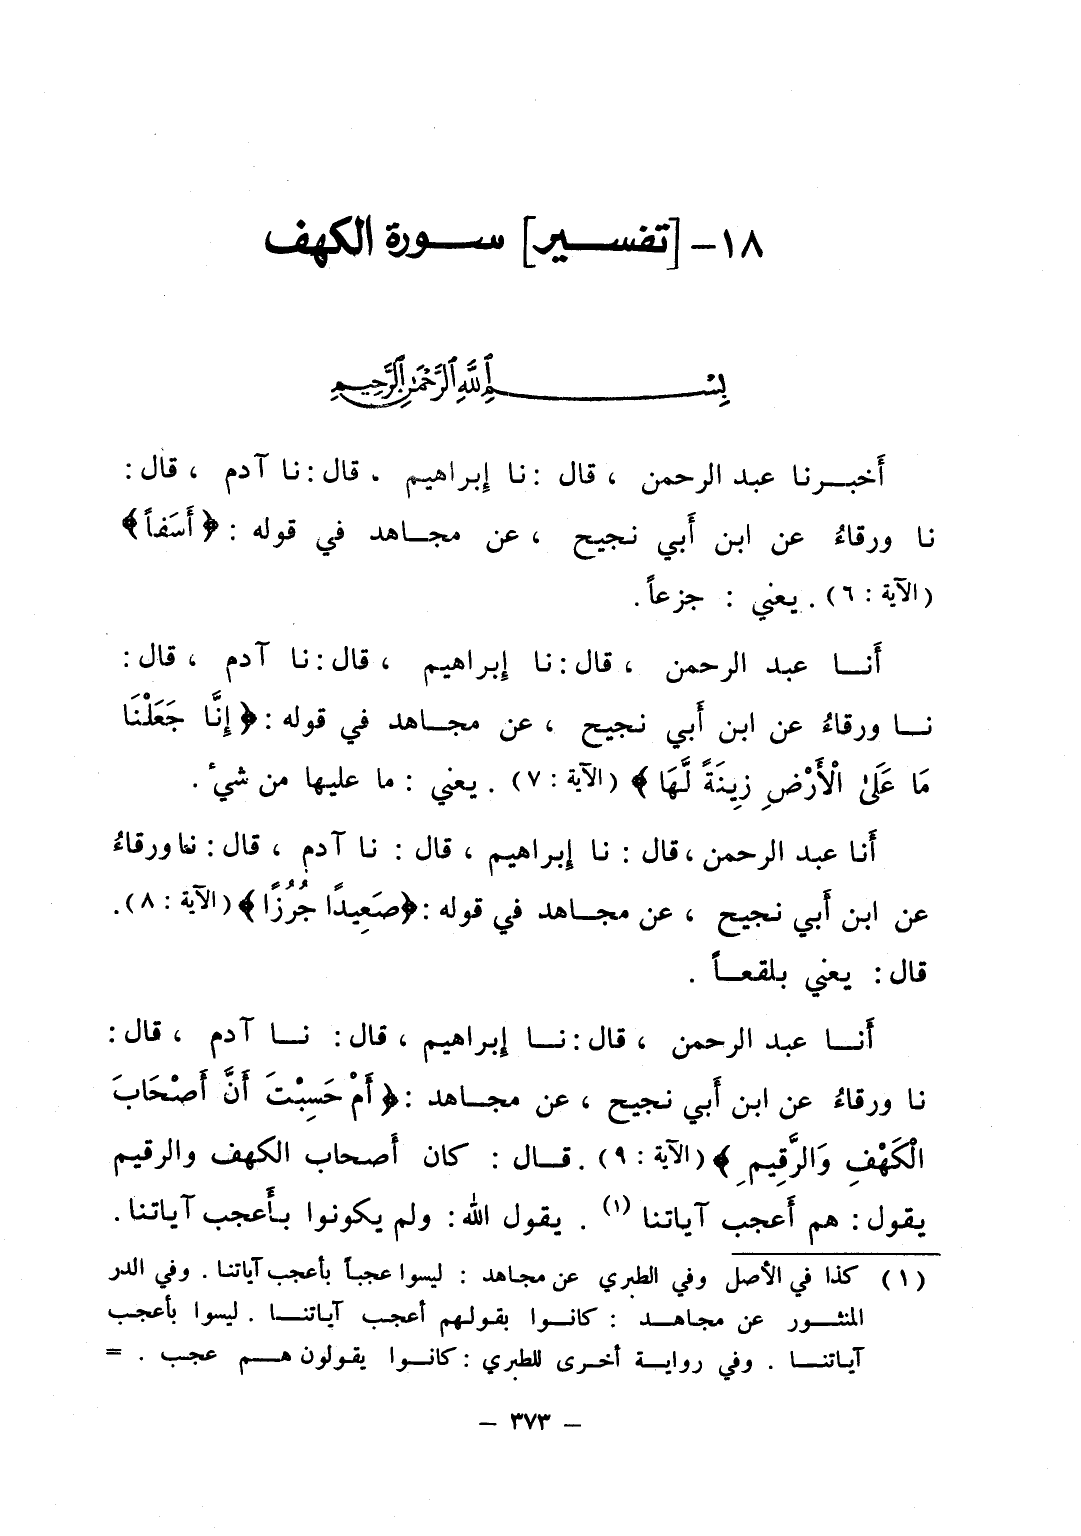 ١٨- [تفسير] سورة الكهف
بِسْمِ اللَّهِ الرَّحْمَٰنِ الرَّحِيمِ
أخبرنا عبد الرحمن ، قال : نا إبراهيم . قال : نا آدم ، قال :
نا ورقاءُ عن ابن أبي نجيح ، عن مجاهد في قوله : ﴿ أَسَفاً ﴾
(الآية : ٦) . يعني : جزعاً .
أنا عبد الرحمن ، قال : نا إبراهيم ، قال : نا آدم ، قال :
نا ورقاءُ عن ابن أبي نجيح ، عن مجاهد في قوله : ﴿ إِنَّا جَعَلْنَا
مَا عَلَى الْأَرْضِ زِينَةً لَّهَا ﴾ (الآية : ٧) . يعني : ما عليها من شيء .
أنا عبد الرحمن ، قال : نا إبراهيم ، قال : نا آدم ، قال : نا ورقاءُ
عن ابن أبي نجيح ، عن مجاهد في قوله : ﴿صَعِيدًا جُرُزًا ﴾ (الآية : ٨) .
قال : يعني بلقعاً .
أنا عبد الرحمن ، قال : نا إبراهيم ، قال : نا آدم ، قال :
نا ورقاءُ عن ابن أبي نجيح ، عن مجاهد : ﴿ أَمْ حَسِبْتَ أَنَّ أَصْحَابَ
الْكَهْفِ وَالرَّقِيمِ ﴾ (الآية : ٩) . قال : كان أصحاب الكهف والرقيم
يقول : هم أعجب آياتنا (١) . يقول الله : ولم يكونوا بأعجب آياتنا .
(١) كذا في الأصل وفي الطبري عن مجاهد : ليسوا عجباً بأعجب آياتنا . وفي الدر
المنثور عن مجاهد : كانوا بقولهم أعجب آياتنا . ليسوا بأعجب
آياتنا . وفي رواية أخرى للطبري : كانوا يقولون هم عجب . =
- ٣٧٣ -